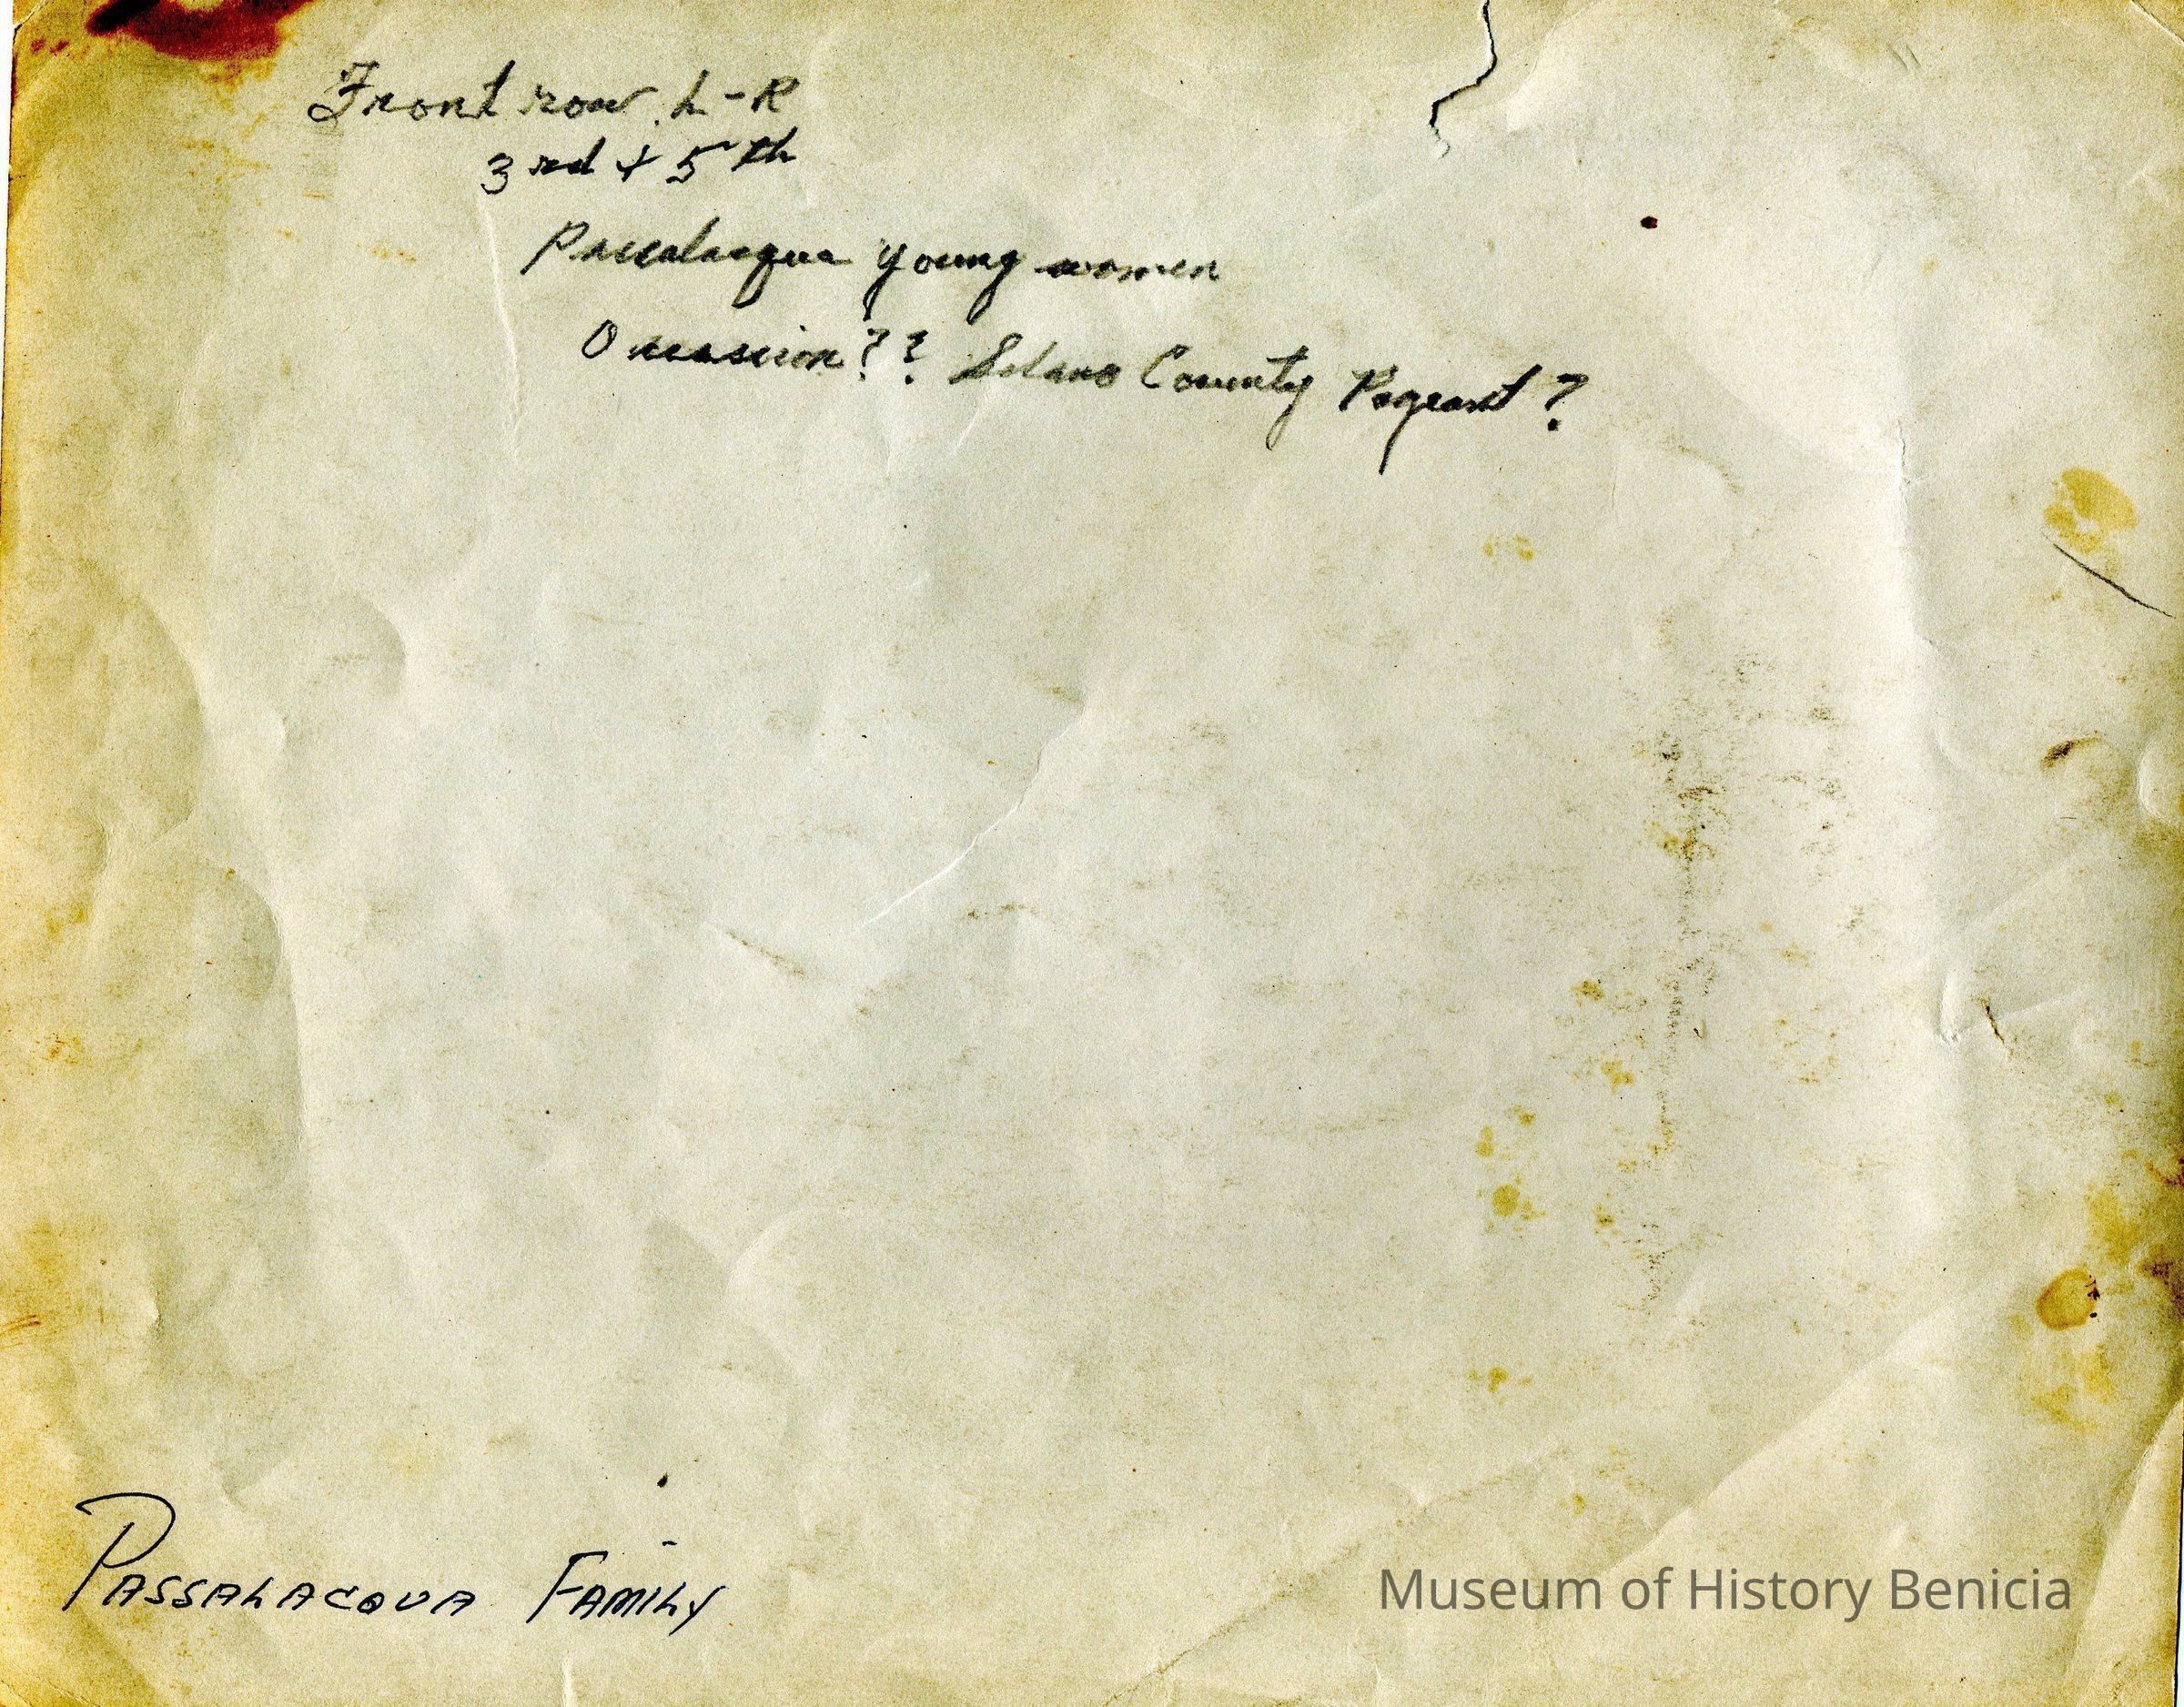 Front row L-R
3rd + 5th
Passalacqua young women
Occassion?? Solano County Pageant?
PASSALACQUA FAMILY
Museum of History Benicia